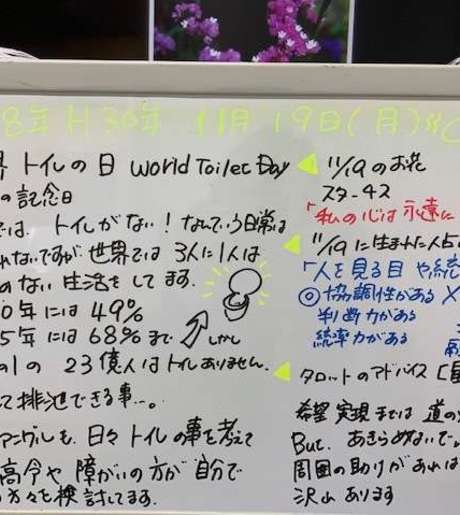 8年 H30年 11月 19日(月)
トイレの日 World Toilet Day
の記念日
では、トイレがない！なんていう日常は
れないですが世界では 3人に1人は
のない 生活を してます。
0年には 49%
5年には 68%まで しかし
の1の 23億人はトイレありません。
て排泄できる事…。
アングルも、日々トイレの事を考えて
高令や 障がいの方が 自分で
方々を検討してます。
11/19のお花
スターチス
「私の心は永遠に
11/19に生まれた人占
「人を見る目や統
◎協調性がある ×
判断力がある
統率力がある
タロットのアドバイス
希望 実現までは 道の
But、あきらめないで
周囲の助けがあれば
沢山あります